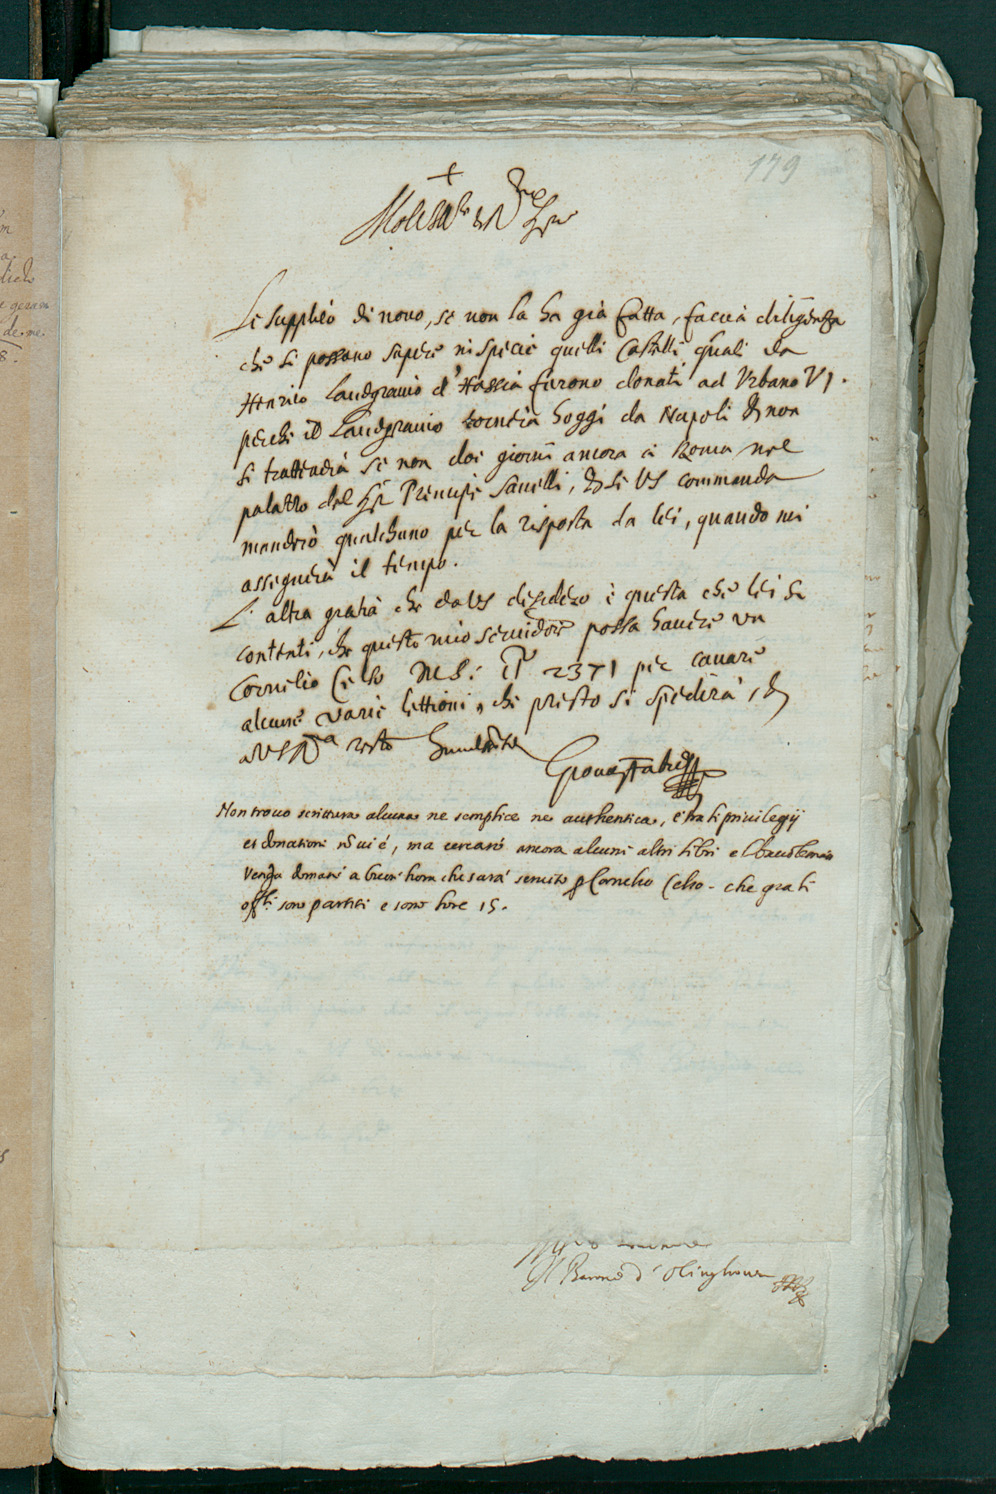 179
+
Molto Ill.re et R.do Sig.re
Le supplico di novo, se non la ha già fatta, faccia diligenza
che si possano sapere in specie quelli Castelli quali da
Henrico Landgravio d'Hassia furono donati ad Urbano VI.
perche il Landgravio tornerà hoggi da Napoli et non
si trattenerà se non doi giorni ancora a Roma nel
palazzo del Sig.r Principe Savelli, et se VS commanda
mandrò qualchuno per la risposta da lei, quando mi
assegnerà il tempo.
L'altra gratia che da VS desidero è questa che lei si
contenti, che questo mio servidore possa havere un
Cornelio Celso MS: 2371 per cavare
alcune varie lettioni, che presto si spedirà, et
a VS resto
Non trovo scrittura alcuna ne semplice ne authentica, e tra li privilegij
et donationi nō vi é, ma cercarò ancora alcuni altri libri e
venga domani a buon' hora che sarà servito p Cornelio Celso - che gia li
off.li sono partiti e sono hore 15.
Il Barone d'